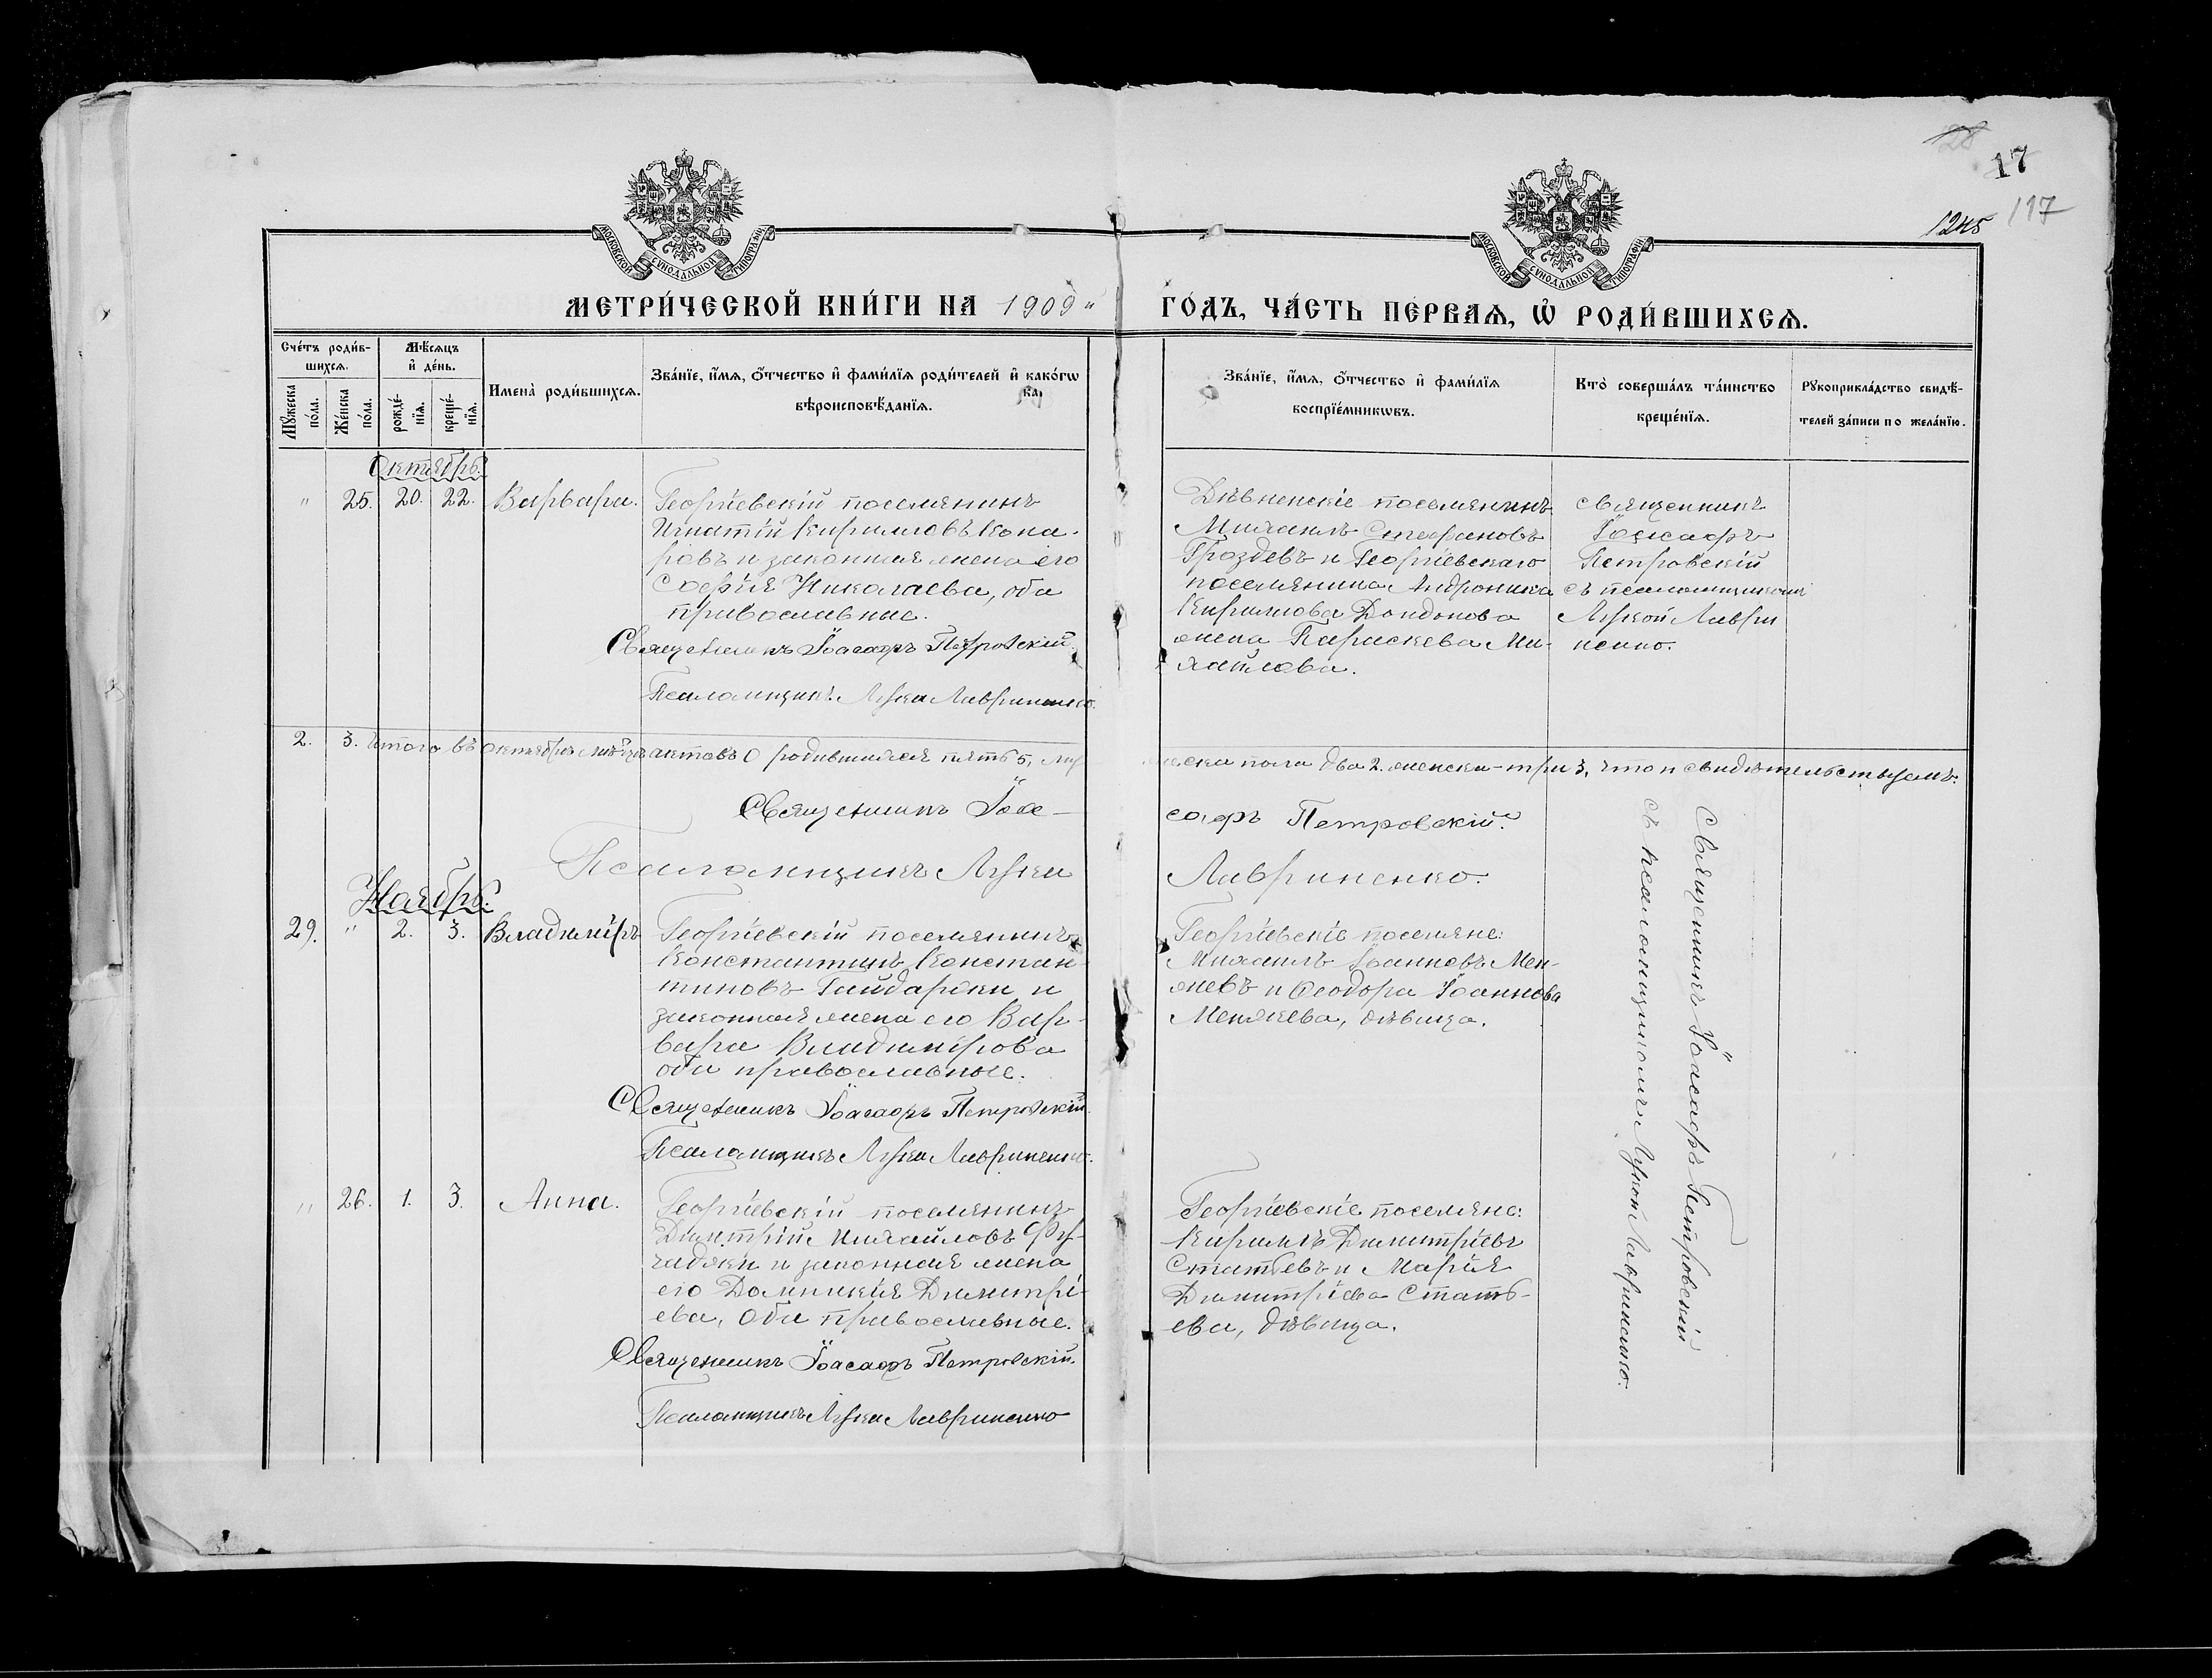 28
17
117
1245
МОСКОВСКОЙ СѴНОДАЛЬНОЙ ТИПОГРАФІИ
МОСКОВСКОЙ СѴНОДАЛЬНОЙ ТИПОГРАФІИ
МЕТРИ́ЧЕСКОЙ КНИ́ГИ НА 1909 "
ГО́ДЪ, ЧА́СТЬ ПЕ́РВАѦ, Ѡ҆ РОДИ́ВШИХСѦ.
Сче́тъ роди́в-
шихсѧ.
Мꙋ́жеска по́ла.
Же́нска по́ла.
Мѣ́сѧцъ
и҆ де́нь.
рожде́-
нїѧ.
креще́-
нїѧ.
Имена̀ роди́вшихсѧ.
Зва́нїе, и҆́мѧ, ѻ҆́тчество и҆ фами́лїѧ роди́телей и҆ како́гѡ
вѣроисповѣ́данїѧ.
Зва́нїе, и҆́мѧ, ѻ҆́тчество и҆ фами́лїѧ
воспрїе́мникѡвъ.
Кто̀ соверша́лъ та́инство
креще́нїѧ.
Рꙋкоприкла́дство свидѣ́-
телей за́писи по жела́нїю.
Октябрь.
" 25. 20. 22. Варвара.
Георгіевскій поселянинъ
Игнатій Кирилловъ Кона-
ровъ и законная жена его
Софія Николаева, оба
православные.
Священникъ Іоасафъ Петровскій.
Псаломщикъ Лука Лавриненко.
поселянинъ
Михаилъ Стефановъ
Гроздевъ и Георгіевскаго
поселянина Андроника
Кириллова Дондонова
жена Параскева Ми-
хайлова.
Священникъ
Іоасафъ
Петровскій
съ псаломщикомъ
Лукой Лаври
ненко.
2. 3. Итого въ октябрѣ мѣсяцѣ актовъ о родившихся пять 5, му
жеска пола два 2. женска - три 3, что и свидѣтельствуемъ:
Священникъ Іоа-
сафъ Петровскій.
Псаломщикъ Лука
Лавриненко.
Ноябрь.
29. " 2. 3. Владиміръ
Георгіевскій поселянинъ
Константинъ Констан-
тиновъ Гайдаржи и
законная жена его Вар-
вара Владимірова
оба православные.
Священникъ Іоасафъ Петровскій.
Псаломщикъ Лука Лавриненко.
Георгіевскіе поселяне:
Михаилъ Іоанновъ Мен-
жевъ и Ѳеодора Іоаннова
Менжева, дѣвица.
Священникъ Іоасафъ Петровскій
съ псаломщикомъ Лукой Лавриненко.
" 26. 1. 3. Анна.
Георгіевскій поселянинъ
Димитрій Михайловъ
и законная жена
его Домникія Димитрі-
ева, оба православные.
Священникъ Іоасафъ Петровскій.
Псаломщикъ Лука Лавриненко
Георгіевскіе поселяне:
Кириллъ Димитріевъ
Статьевъ и Марія
Димитріева Стать-
ева, дѣвица.